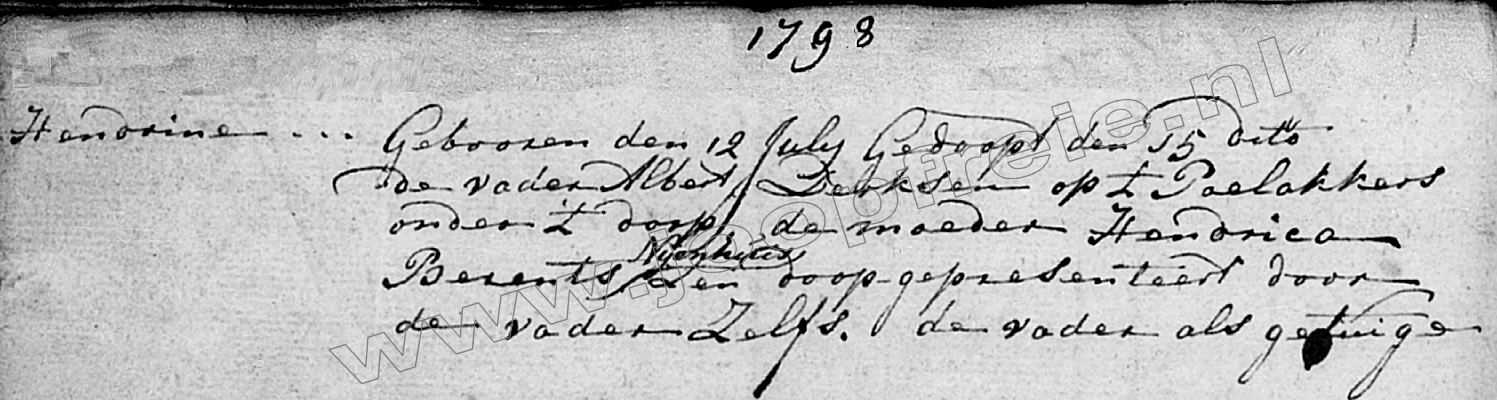 1798
Hendrine ... Gebooren den 12 July Gedoopt den 15 dito
de vader Albert Derksen op 't Paelakkers
onder 't dorp, de moeder Hendrica
Nijenhuis
Berents den doop gepresenteert door
de vader Zelfs. de vader als getuige
www.jaopfreie.nl